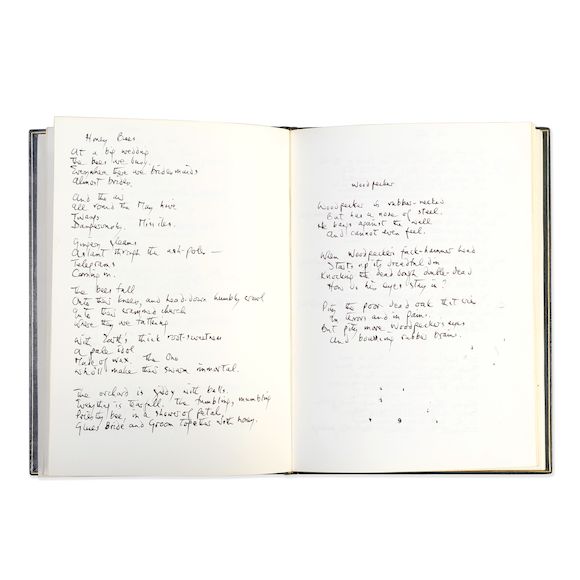 Honey Bees
At a big wedding
The bees are busy.
Everywhere there are bridesmaids
Almost brides.
And the air
All round the May hive
Twangs
Dangerously. Missiles.
Ginger gleams
Aslant through the ash-poles —
Telegrams
Coming in.
The bees fall
Onto their knees, and head-down humbly crawl
Into their crammed church
Where they are
With Earth's thick root-sweetness
A pale idol
Made of wax. The One
Who'll make their swarm immortal.
The orchard is giddy with bells.
Everything is The tumbling, mumbling
Priestly bee, in a shower of petal,
Glues Bride and Groom together with honey.
Woodpecker
Woodpecker is rubber-necked
But has a nose of steel.
He bangs against the wall
And cannot even feel.
When Woodpecker's jack-hammer head
Starts up its dreadful din
Knocking the dead bough double-dead
How do his eyes stay in?
Pity the poor dead oak that cries
In terrors and in pains.
But pity more Woodpecker's eyes
And bouncing rubber brain.